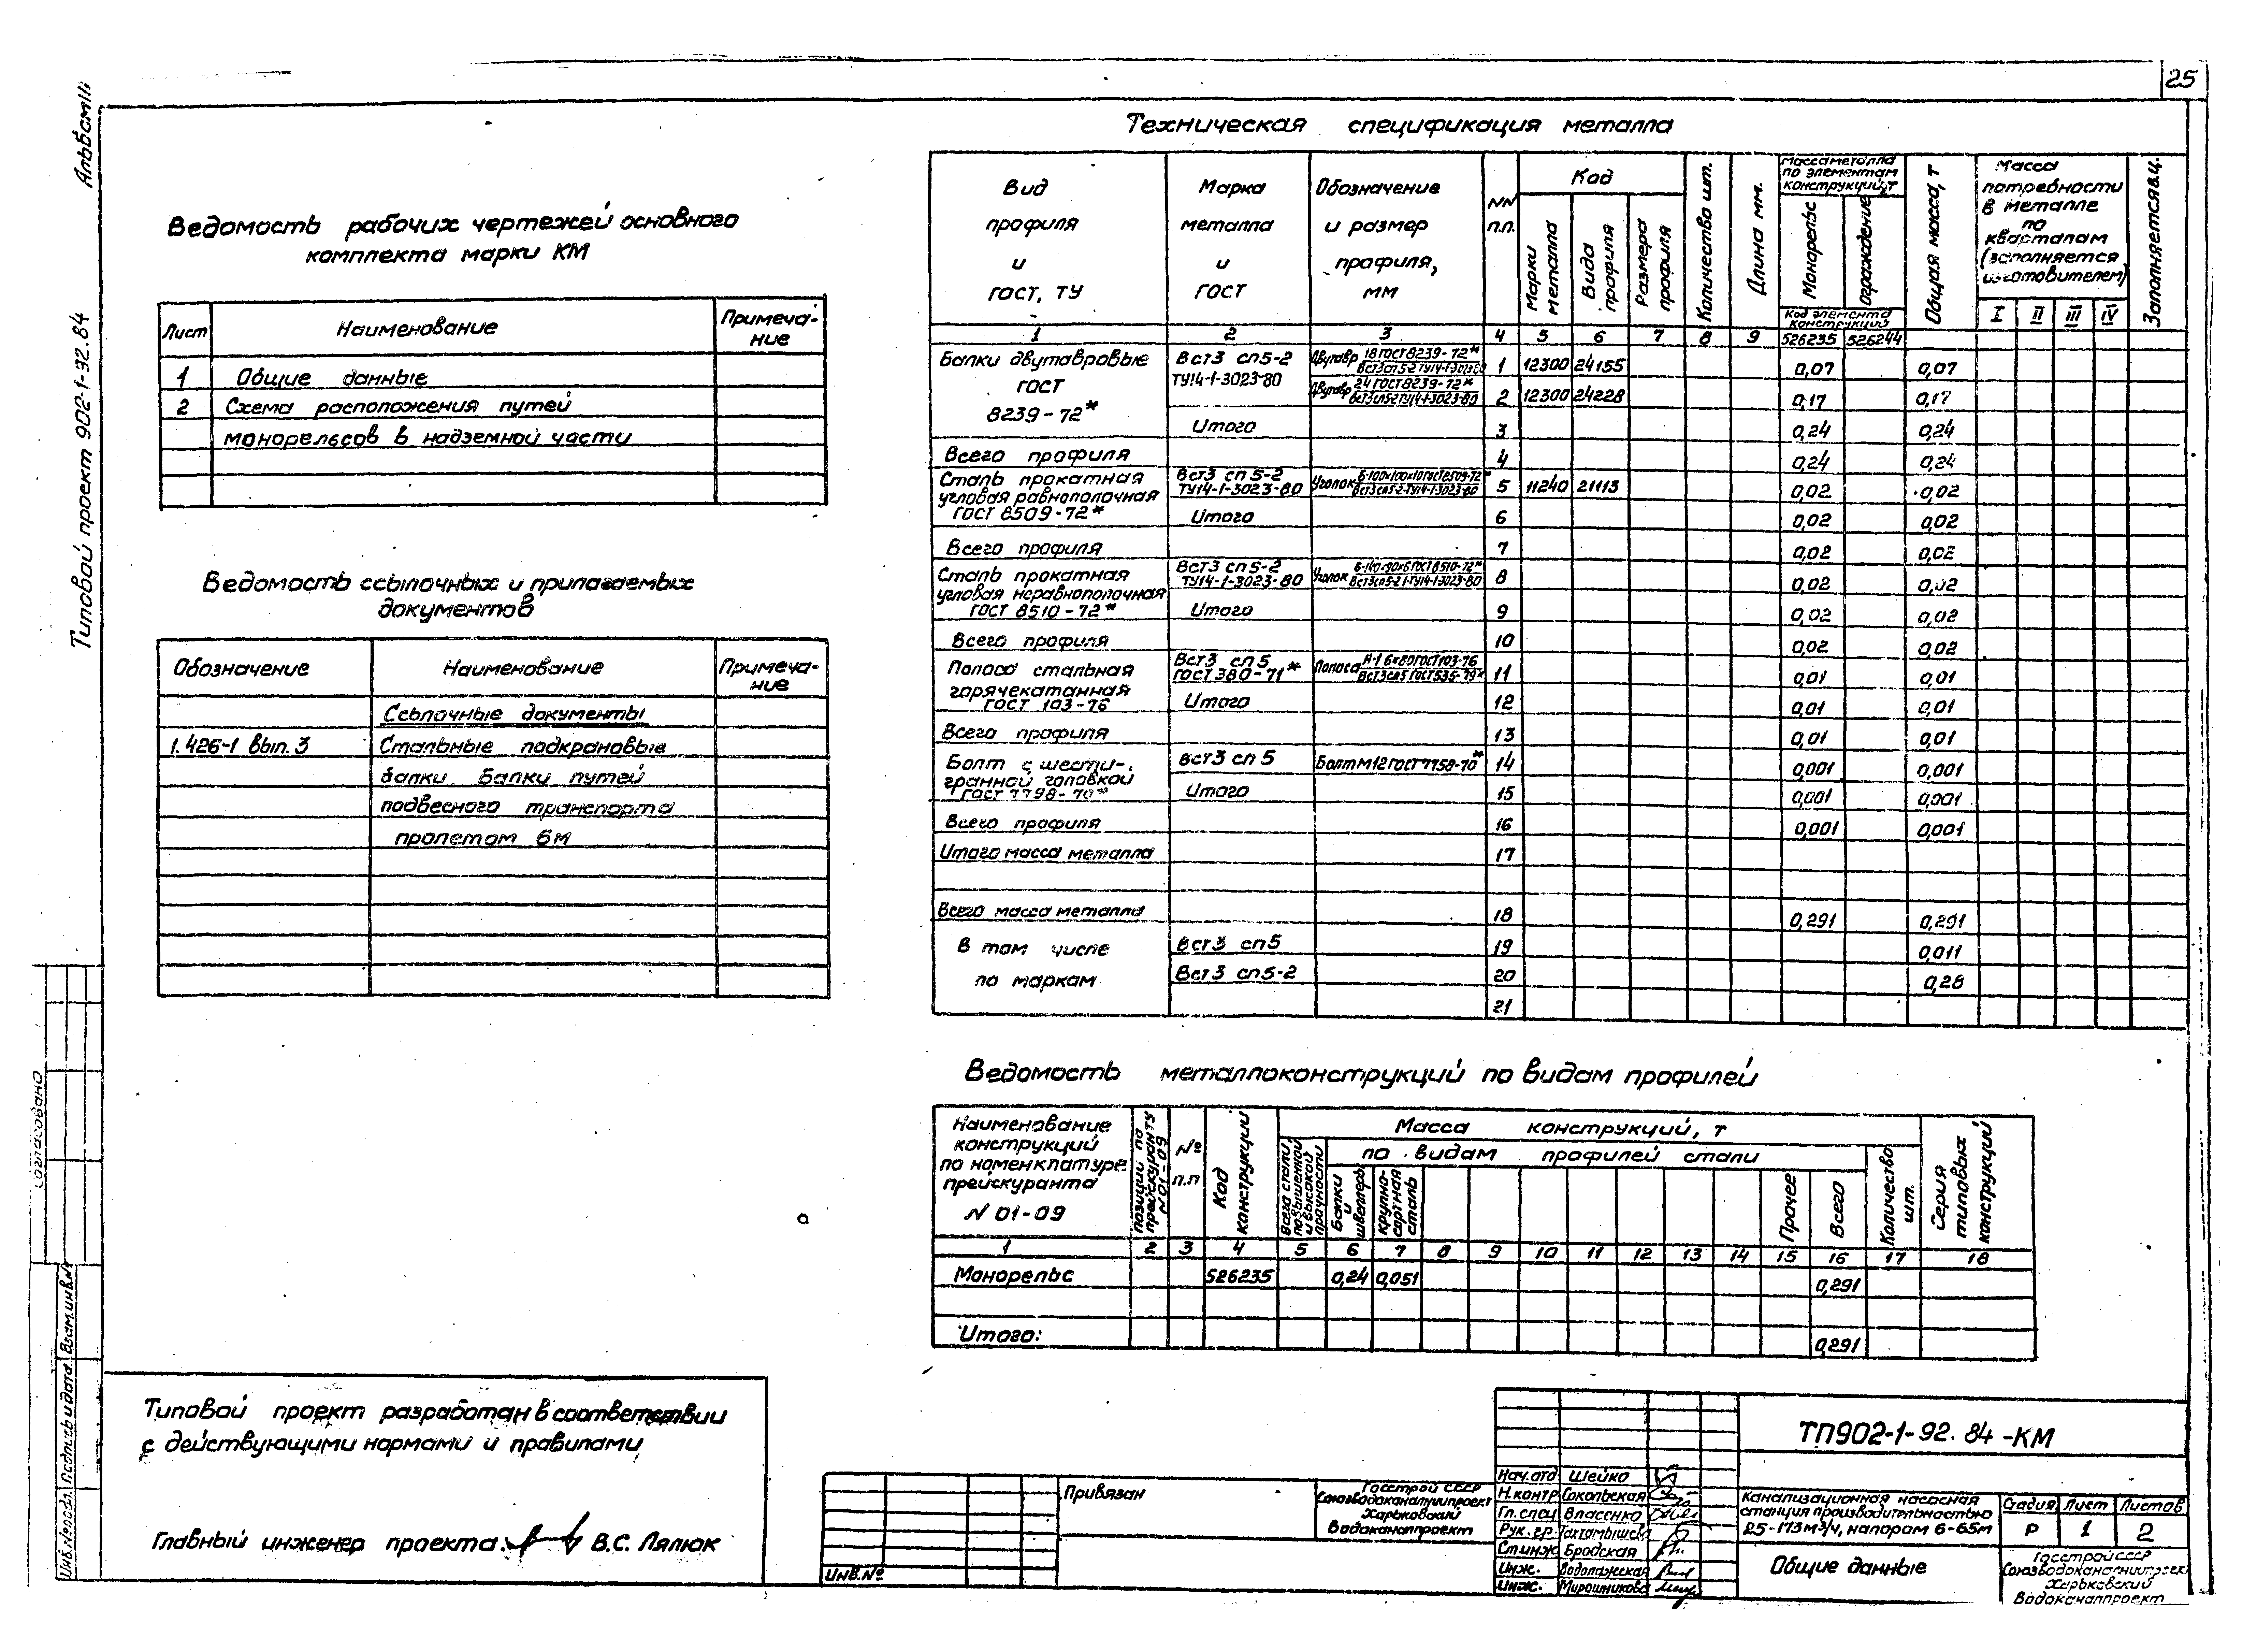 25
Альбом III
Типовой проект 902-1-92.84
Ведомость рабочих чертежей основного
комплекта марки КМ
Лист Наименование Примеча-
ние
1 Общие данные
2 Схема расположения путей
монорельсов в надземной части
Ведомость ссылочных и прилагаемых
документов
Обозначение Наименование Примеча-
ние
Ссылочные документы
1.426-1 вып. 3 Стальные подкрановые
балки. Балки путей
подвесного транспорта
пролетом 6м
Техническая спецификация металла
Вид профиля и ГОСТ, ТУ
Марка металла и ГОСТ
Обозначение и размер профиля, мм
NN п.п.
Код
Марки металла
Вида профиля
Размера профиля
Количество шт.
Длина мм.
Масса металла по элементам конструкций, т
Монорельс
Ограждение
Код элемента конструкций
Общая масса, т
Масса потребности в металле по кварталам (заполняется изготовителем)
I II III IV
Заполняется в.ц.
1 2 3 4 5 6 7 8 9 526235 526244
Балки двутавровые ГОСТ 8239-72*
Вст3 сп5-2 ТУ14-1-3023-80 Двутавр 18 ГОСТ 8239-72* Вст3сп5-2 ТУ14-1-3023-80 1 12300 24155 0,07 0,07
Двутавр 24 ГОСТ 8239-72* Вст3сп5-2 ТУ14-1-3023-80 2 12300 24228 0,17 0,17
Итого 3 0,24 0,24
Всего профиля 4 0,24 0,24
Сталь прокатная угловая равнополочная ГОСТ 8509-72*
Вст3 сп5-2 ТУ14-1-3023-80 Уголок Б-100×100×10 ГОСТ 8509-72* Вст3сп5-2-ТУ14-1-3023-80 5 11240 21113 0,02 0,02
Итого 6 0,02 0,02
Всего профиля 7 0,02 0,02
Сталь прокатная угловая неравнополочная ГОСТ 8510-72*
Вст3 сп5-2 ТУ14-1-3023-80 Уголок 8 0,02 0,02
Итого 9 0,02 0,02
Всего профиля 10 0,02 0,02
Полоса стальная горячекатанная ГОСТ 103-76
Вст3 сп5 ГОСТ 380-71* Полоса Вст3сп5 ГОСТ 535-79* 11 0,01 0,01
Итого 12 0,01 0,01
Всего профиля 13 0,01 0,01
Болт с шести-
гранной головкой ГОСТ 7798-70*
Вст3 сп 5 Болт М12 14 0,001 0,001
Итого 15 0,001 0,001
Всего профиля 16 0,001 0,001
Итого масса металла 17
Всего масса металла 18 0,291 0,291
В том числе по маркам
Вст3 сп5 19 0,011
Вст3 сп5-2 20 0,28
21
Ведомость металлоконструкций по видам профилей
Наименование конструкций по номенклатуре прейскуранта N 01-09
Позиции по прейскуранту N 01-09
№ п.п
Код конструкции
Масса конструкций, т
Всего стали повышенной и высокой прочности
по видам профилей стали
Балки и швеллеры
Крупно-
сортная сталь
Прочее
Всего
Количество шт.
Серия типовых конструкций
1 2 3 4 5 6 7 8 9 10 11 12 13 14 15 16 17 18
Монорельс 526235 0,24 0,051 0,291
Итого: 0,291
Типовой проект разработан в соответствии
с действующими нормами и правилами
Главный инженер проекта: В.С. Лялюк
Согласовано
Инв.№подл. Подпись и дата Взам.инв.№
Инв.№
Привязан
Госстрой СССР
Союзводоканалниипроект
Харьковский
Водоканалпроект
Нач.отд Шейко
Н.контр Сокольская
Гл.спец Власенко
Рук.гр.
Ст.инж Бродская
Инж. Водолажская
Инж. Мирошникова
ТП902-1-92.84-КМ
Канализационная насосная
станция производительностью
25-173м³/ч, напором 6-65м
Стадия Лист Листов
Р 1 2
Общие данные
Госстрой СССР
Союзводоканалниипроект
Харьковский
Водоканалпроект